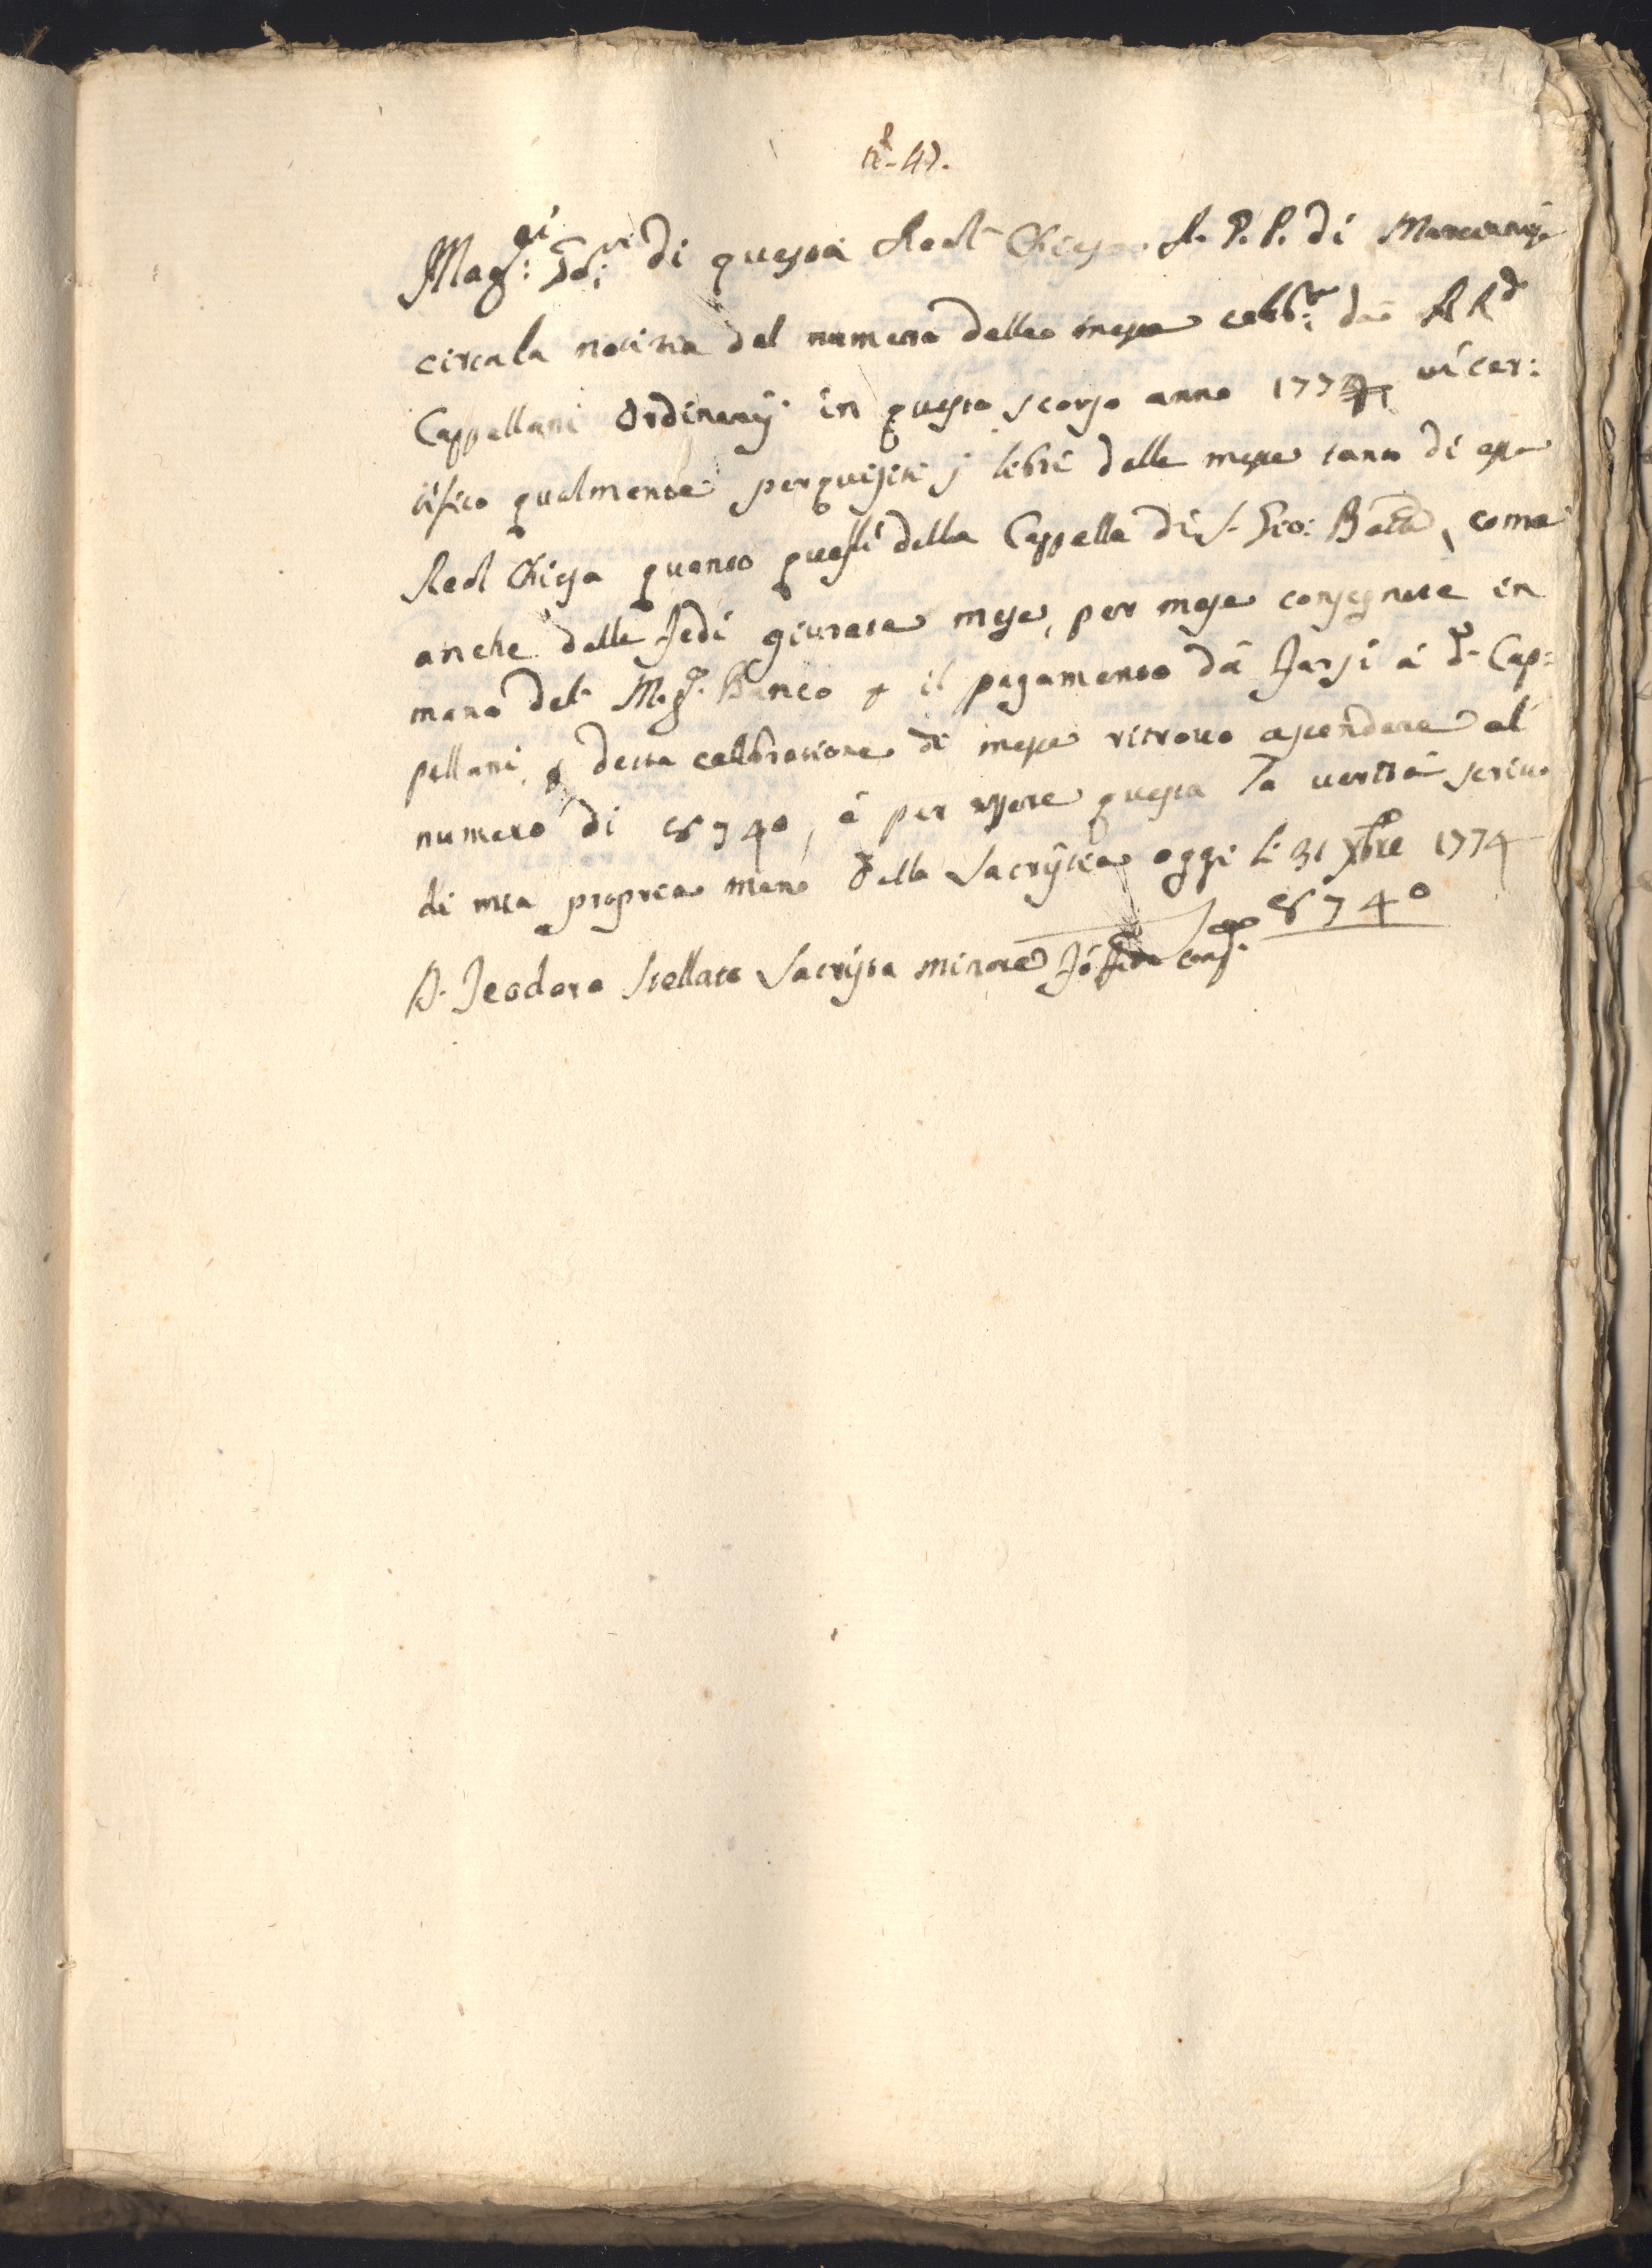 n.° 47.
Mag:ci Gov:ri di questa Real Chiesa A. P. P. di Marcianise
circa la notizia del numero delle messe celeb:te da RR.di
Cappellani Ordinarij in questo scorso anno 1774 vi cer:
tifico qualmente perquisiti j libri delle messe tanto di essa
Real Chiesa quanto quelli della Cappella di S. Gio: Batta, come
anche delle fedi giurate mese, per mese consegnate in
mano del Mag.co Banco p il pagamento da farsi à d.i Cap:
pellani, p detta cellebrazione di messe ritrovo ascendere al
numero di 8740, è per essere questa la verità scrivo
di mia propria mano dalla Sacristia oggi li 31 Xbre 1774
8740
D. Teodoro Stellato Sacrista minore fò fede come sop.a